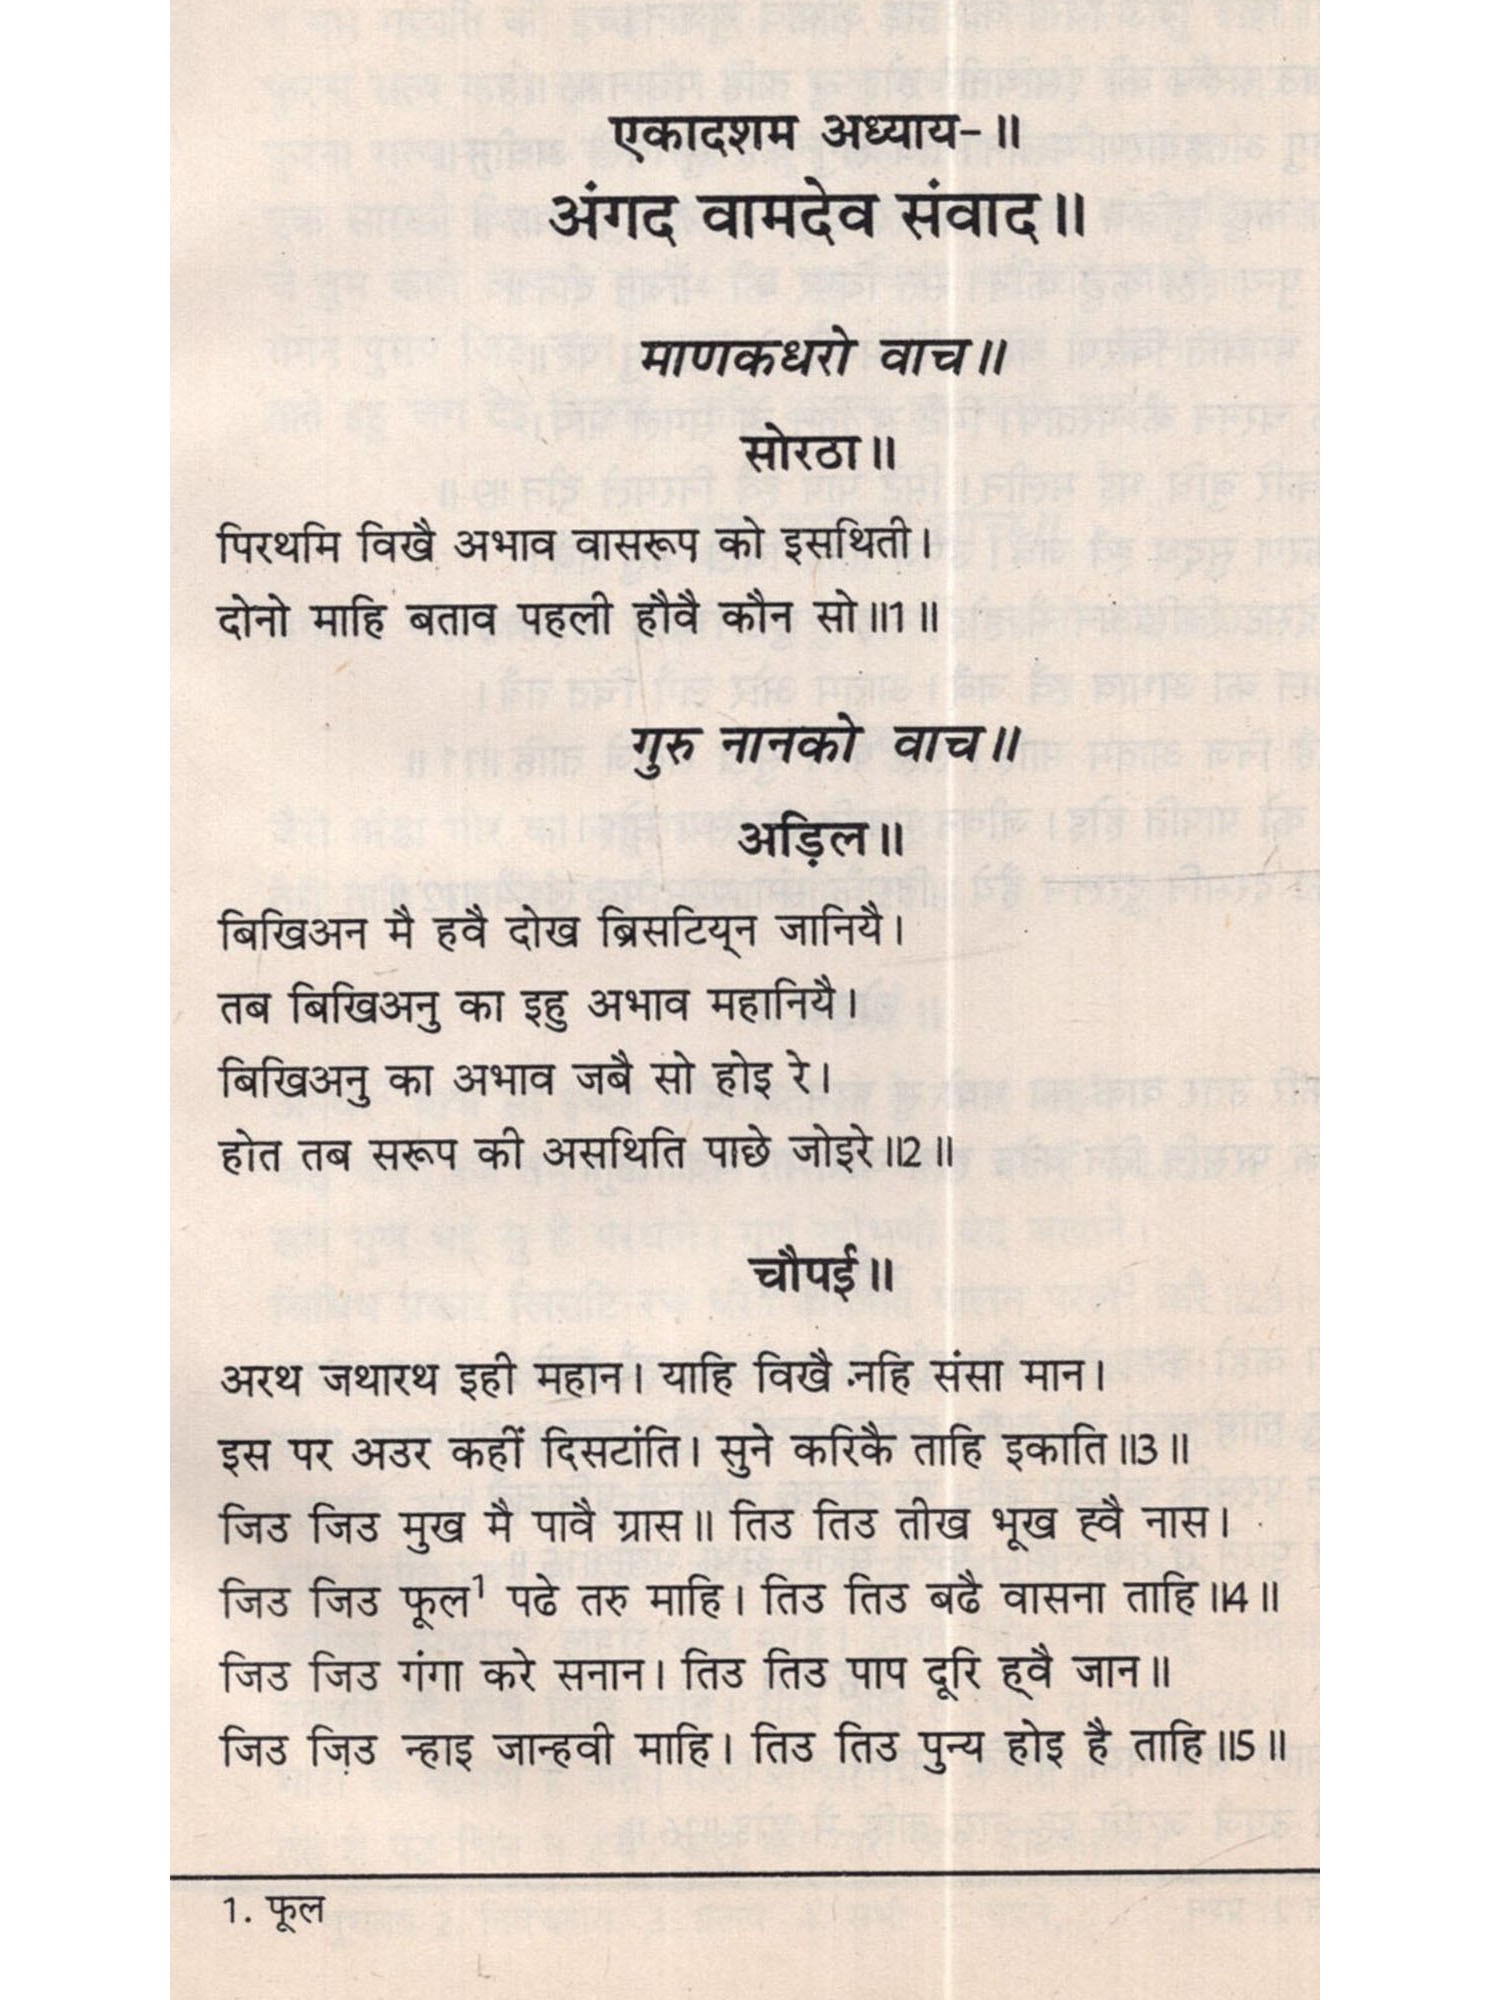 एकादशम अध्याय-॥
अंगद वामदेव संवाद॥
माणकधरो वाच॥
सोरठा॥
पिरथमि विखै अभाव वासरूप को इसथिती।
दोनो माहि बताव पहली हौवै कौन सो॥1॥
गुरु नानको वाच॥
अड़िल॥
बिखिअन मै हवै दोख ब्रिसटिय्न जानियै।
तब बिखिअनु का इहु अभाव महानियै।
बिखिअनु का अभाव जबै सो होइ रे।
होत तब सरूप की असथिति पाछे जोइरे॥2॥
चौपई॥
अरथ जथारथ इही महान। याहि विखै नहि संसा मान।
इस पर अउर कहीं दिसटांति। सुने करिकै ताहि इकाति॥3॥
जिउ जिउ मुख मै पावै ग्रास॥ तिउ तिउ तीख भूख ह्वै नास।
जिउ जिउ फूल1 पढे तरु माहि। तिउ तिउ बढै वासना ताहि॥4॥
जिउ जिउ गंगा करे सनान। तिउ तिउ पाप दूरि ह्वै जान॥
जिउ जिउ न्हाइ जान्हवी माहि। तिउ तिउ पुन्य होइ है ताहि॥5॥
1. फूल